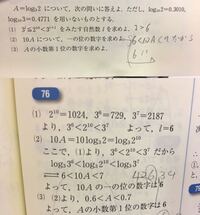 A=log₃2 について，次の問いに答えよ。ただし，log₁₀2=0.3010,
log₁₀3=0.4771 を用いないものとする。
(1) 3ˡ≦2¹⁰<3ˡ⁺¹ をみたす自然数 l を求めよ。
(2) 10A について，一の位の数字を求めよ。
(3) A の小数第1位の数字を求めよ。
76
(1) 2¹⁰=1024, 3⁶=729, 3⁷=2187
より，3⁶<2¹⁰<3⁷ よって，l=6
(2) 10A=10log₃2=log₃2¹⁰
ここで，(1)より，3⁶<2¹⁰<3⁷ だから
log₃3⁶<log₃2¹⁰<log₃3⁷
⇔6<10A<7
よって，10A の一の位の数字は6
(3) (2)より，0.6<A<0.7
よって，A の小数第1位の数字は6